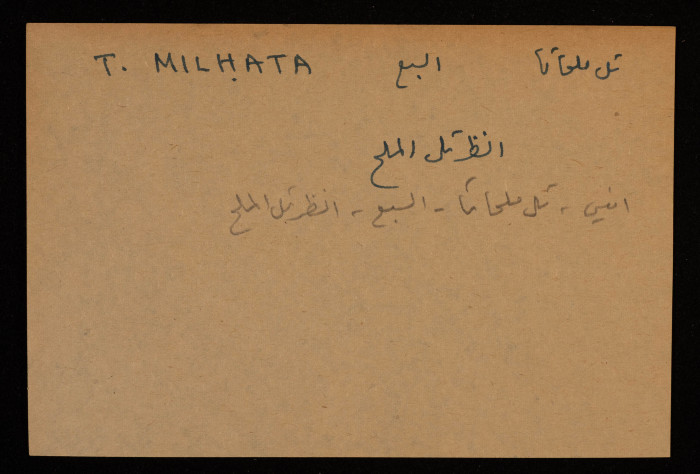 تل ملحاتا السبع T. MILḤATA
انظر تل الملح
اثني - تل ملحاتا - السبع - انظر تل الملح